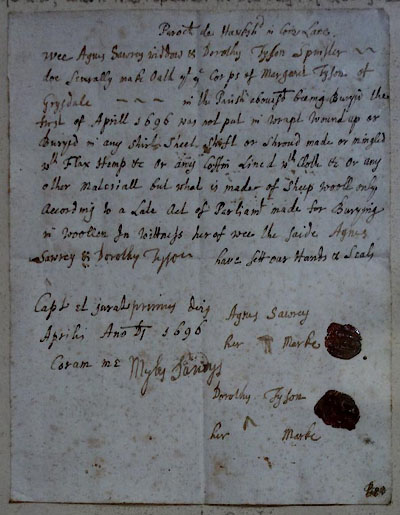 Paroch de Hawksh in Com Lanc
Wee Agnes Sawrey widdow & Dorothy Tyson Spinster
doe Severally make Oath yt ye Corps of Margaret Tyson of
Grysdale in the Parish abovesd being Buryd the
first of Aprill 1696 was not put in wrapt wound up or
Buryed in any Shirt Sheet Shift or Shroud made or mingled
wth Flax Hemp &c Or any Coffin Lined wth Cloth &c Or any
other Materiall but what is made of Sheep wooll only
According to a Late Act of Parliamt made for Burying
in woollen In Wittness herof wee the saide Agnes
Sawrey & Dorothy Tyson have sett our Hands & Seals
Capt et jurat primus die
Aprilis Ano 1696
Coram me Myles Sandys
Agnes Sawrey
her Marke
Dorothy Tyson
her Marke